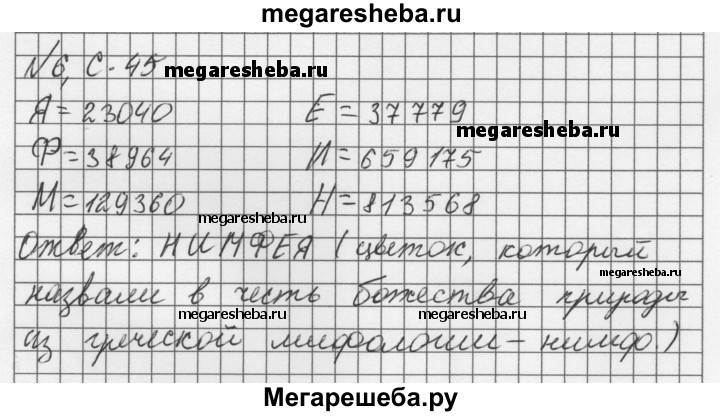 megaresheba.ru
№6, С-45 megaresheba.ru
Я = 23040 Е = 37779
megaresheba.ru
Ф = 38964 И = 659175
М = 129360 Н = 813568
megaresheba.ru
Ответ: НИМФЕЯ (цветок, который
megaresheba.ru
назвали в честь божества природы
megaresheba.ru megaresheba.ru
из греческой мифологии - нимф.)
Мегарешеба.ру